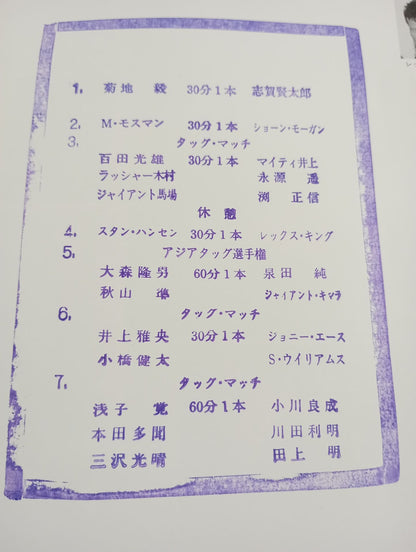 1. 菊地 毅 30分1本 志賀賢太郎
2. M・モスマン 30分1本 ショーン・モーガン
3. タッグ・マッチ
百田光雄 30分1本 マイティ井上
ラッシャー木村 永源 遙
ジャイアント馬場 渕 正信
休憩
4. スタン・ハンセン 30分1本 レックス・キング
5. アジアタッグ選手権
大森隆男 60分1本 泉田 純
秋山 準 ジャイアント・キマラ
6. タッグ・マッチ
井上雅央 30分1本 ジョニー・エース
小橋健太 S・ウイリアムス
7. タッグ・マッチ
浅子 覚 60分1本 小川良成
本田多聞 川田利明
三沢光晴 田上 明